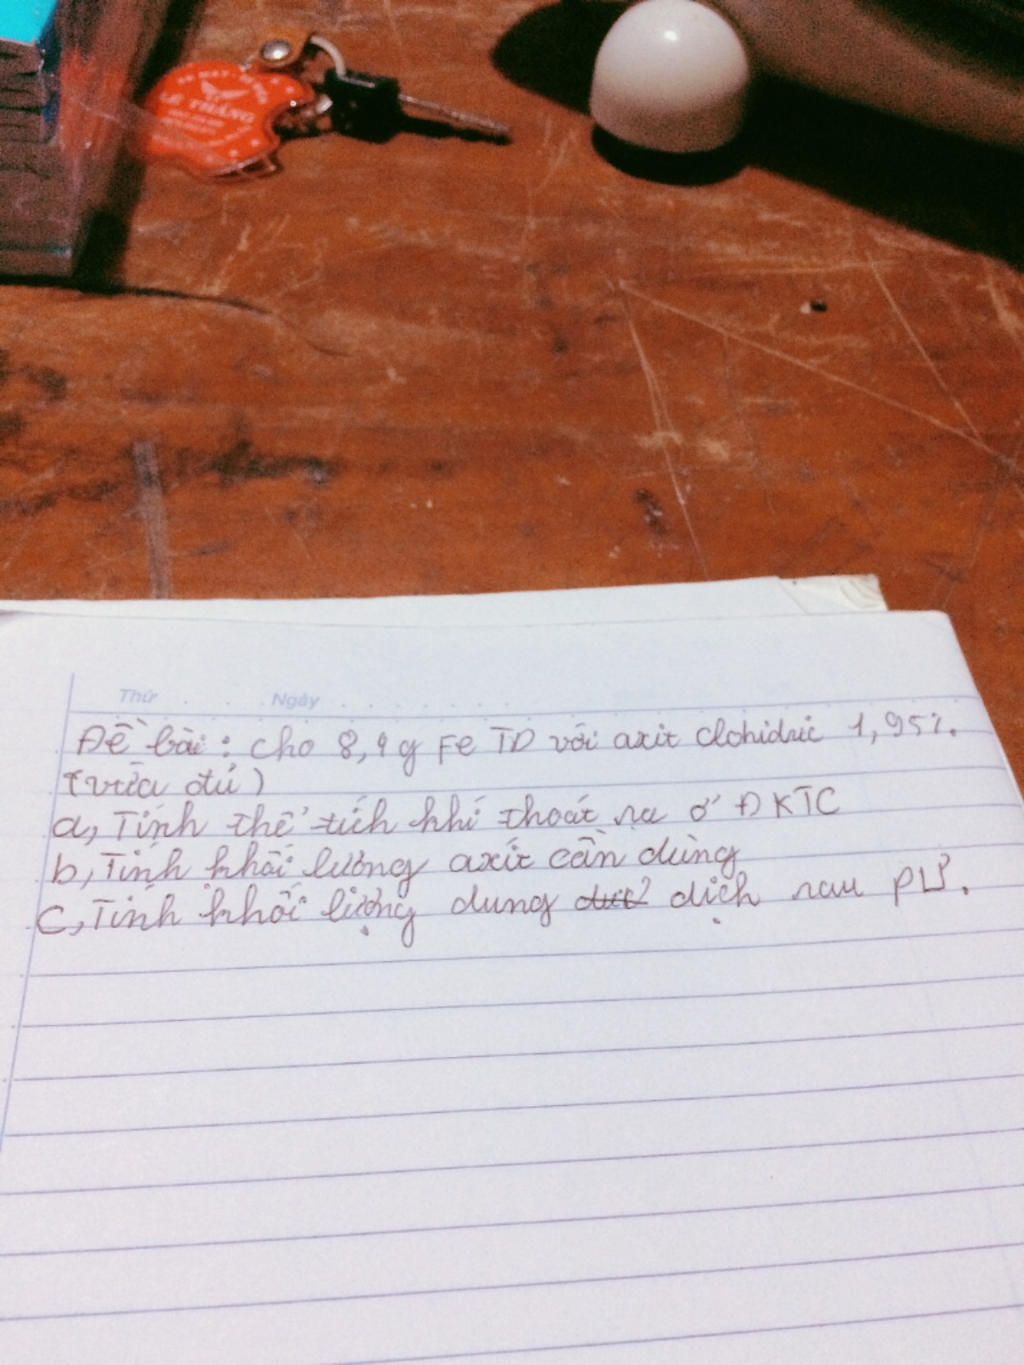 LÊ THẮNG
Thứ . . . . Ngày . . . . . . . .
Đề bài : Cho 8,4g Fe TD với axit clohidric 1,95%.
(vừa đủ)
a, Tính thể tích khí thoát ra ở ĐKTC
b, Tính khối lượng axít cần dùng
c, Tính khối lượng dung dịch sau PƯ.